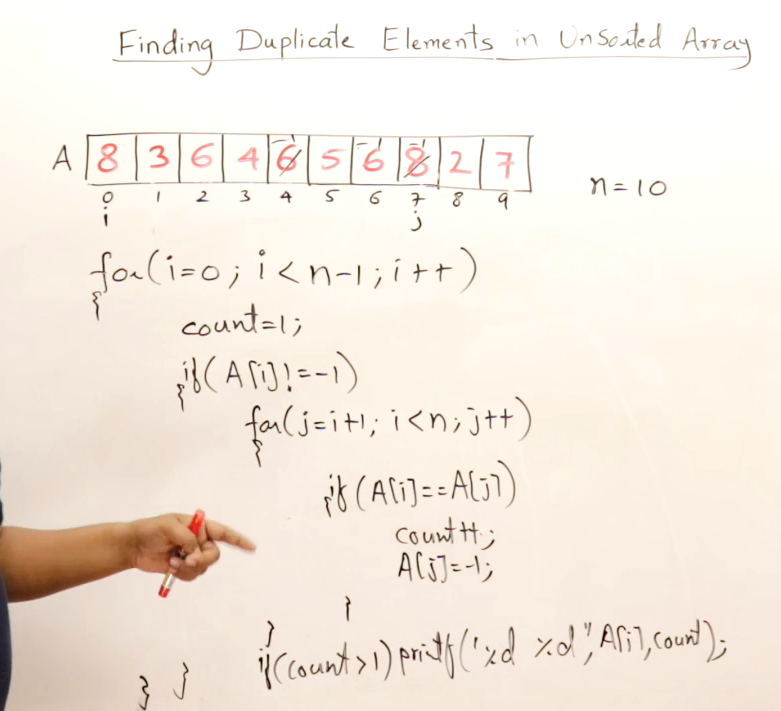 Finding Duplicate Elements in Unsorted Array
-1 -1 -1
A 8 3 6 4 6 5 6 8 2 7
0 1 2 3 4 5 6 7 8 9 n=10
i j
for(i=0; i<n-1; i++)
{
count=1;
if(A[i]!=-1)
{
for(j=i+1; i<n; j++)
{
if(A[i]==A[j])
{
count++;
A[j]=-1;
}
}
if(count>1) printf("%d %d", A[i], count);
} }